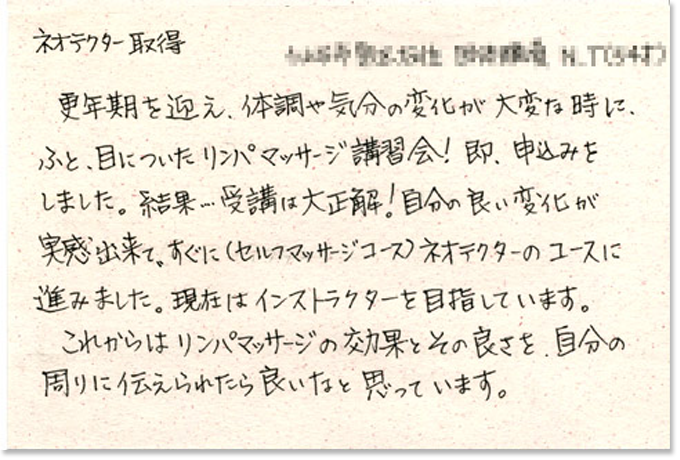 ネオテクター取得
N.T(54才)
更年期を迎え、体調や気分の変化が大変な時に、
ふと、目についたリンパマッサージ講習会！即、申込みを
しました。結果…受講は大正解！自分の良い変化が
実感出来て、すぐに(セルフマッサージコース)ネオテクターのコースに
進みました。現在はインストラクターを目指しています。
これからはリンパマッサージの効果とその良さを、自分の
周りに伝えられたら良いなと思っています。